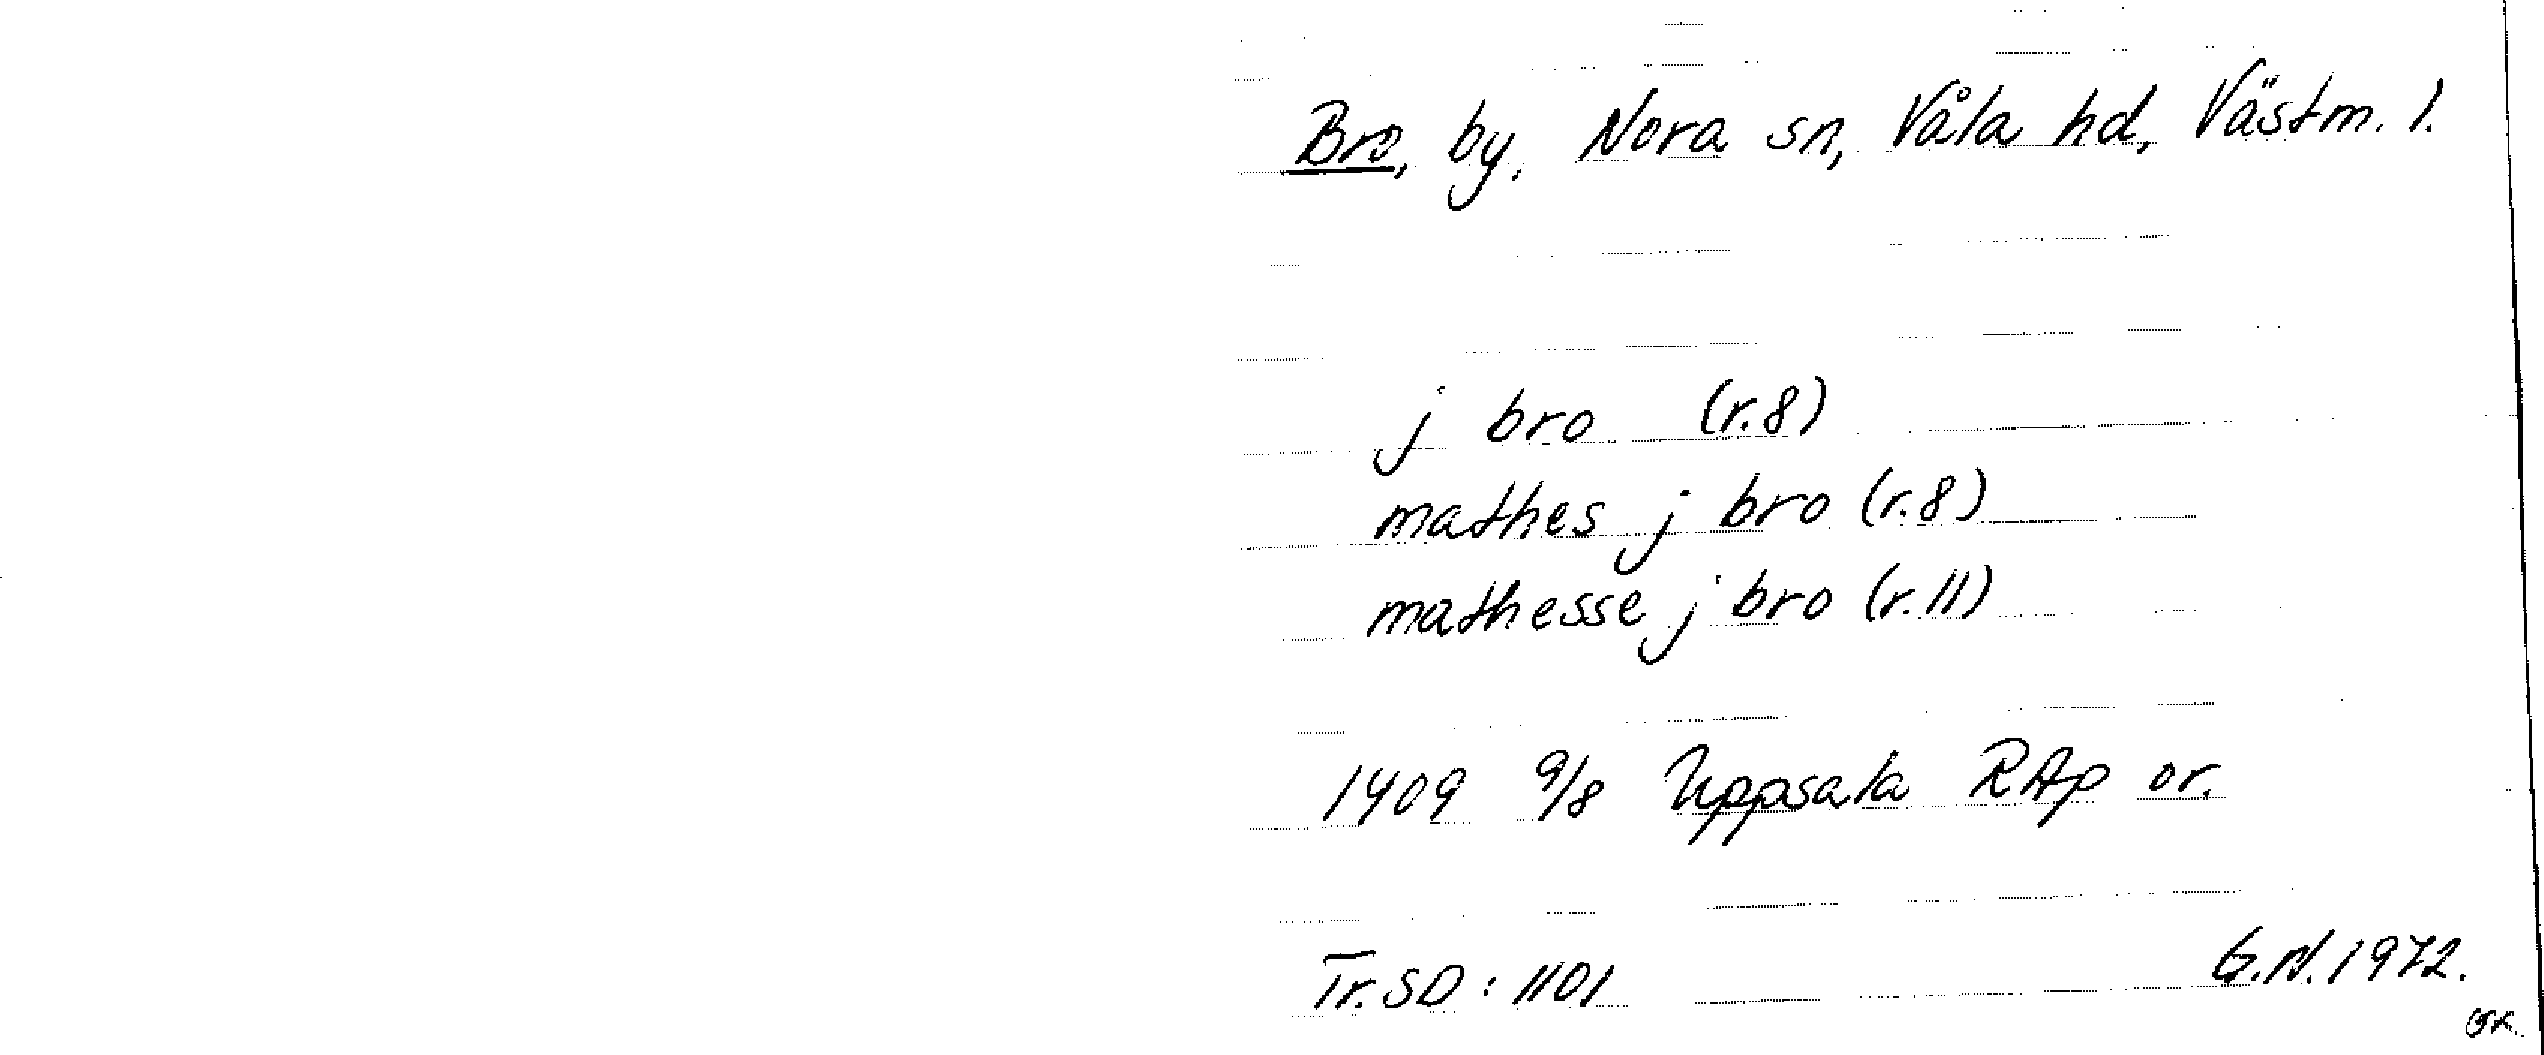 Bro, by, Nora sn, Våla hd, Västm. l.
j bro (r.8)
mathes j bro (r.8)
mathesse j bro (r.11)
1409 9/8 Uppsala RAp or.
Tr. SD: 1101
G.N. 1972.